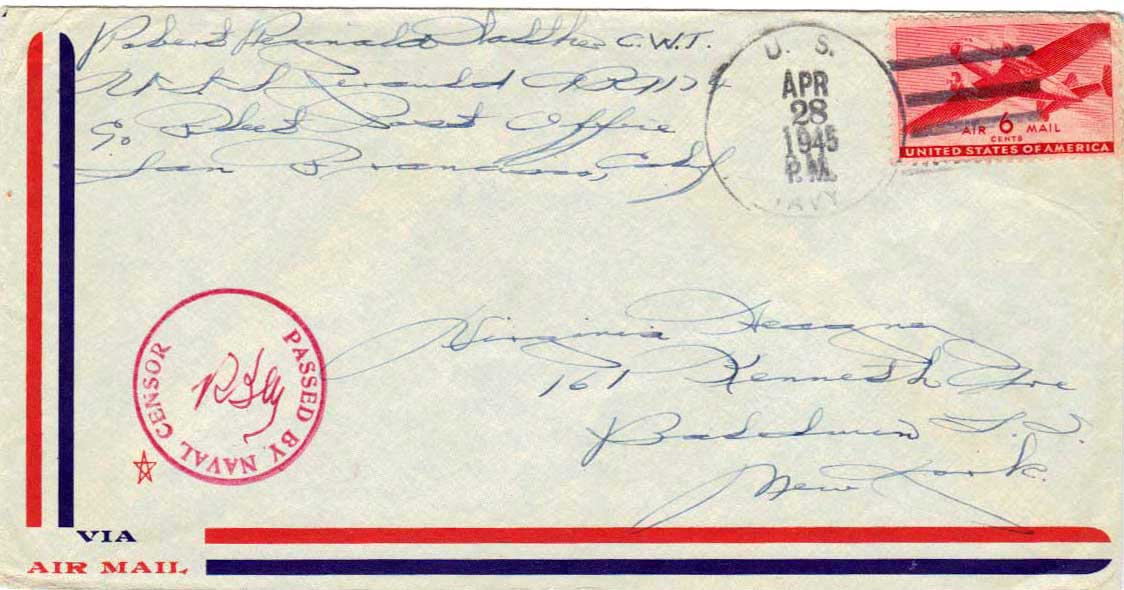 Robert Reginald C.W.T.
U.S.S.
c/o Fleet Post Office
San Francisco, Calif.
U. S.
APR
28
1945
P.M.
NAVY
AIR 6 MAIL
CENTS
UNITED STATES OF AMERICA
PASSED BY NAVAL CENSOR
Virginia
161 Kenneth Ave
Baldwin L. I.
New York.
VIA
AIR MAIL